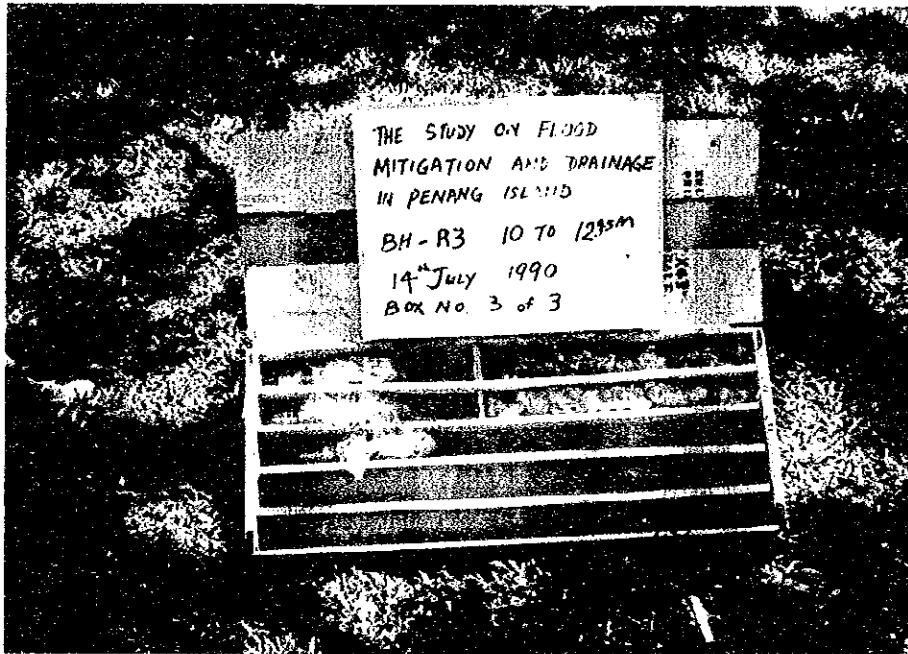 THE STUDY ON FLOOD
MITIGATION AND DRAINAGE
IN PENANG ISLAND
BH-R3 10 TO 12.95M
14th JULY 1990
BOX NO. 3 of 3